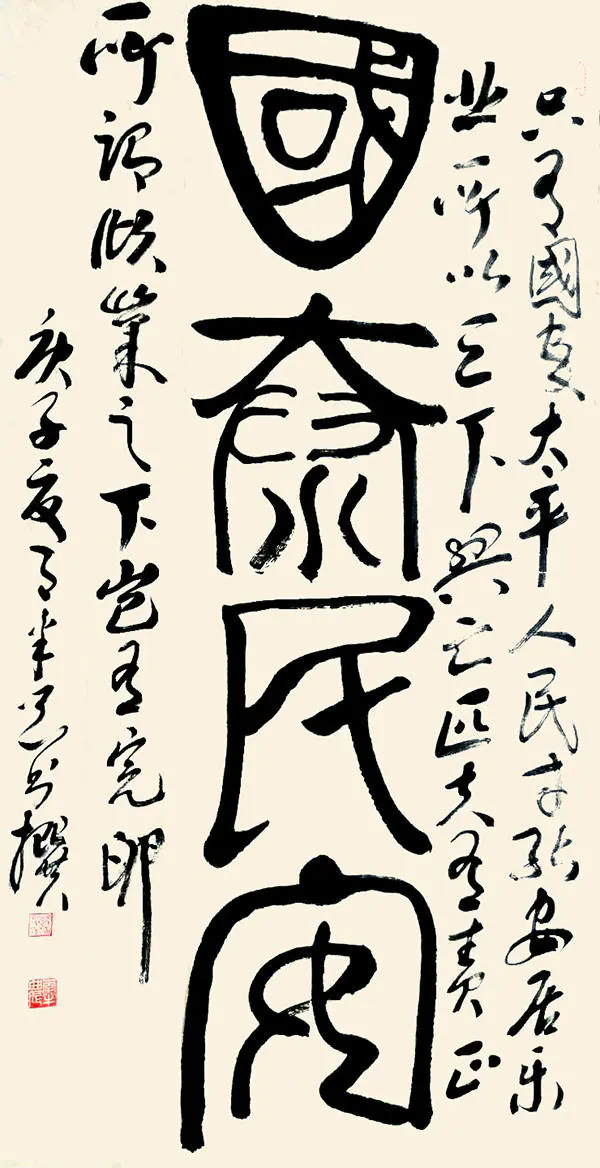 國泰民安
只有國家太平人民才能安居乐
业所以天下興亡匹夫有責正
所謂傾巢之下岂有完卵
庚子夏月半書撰